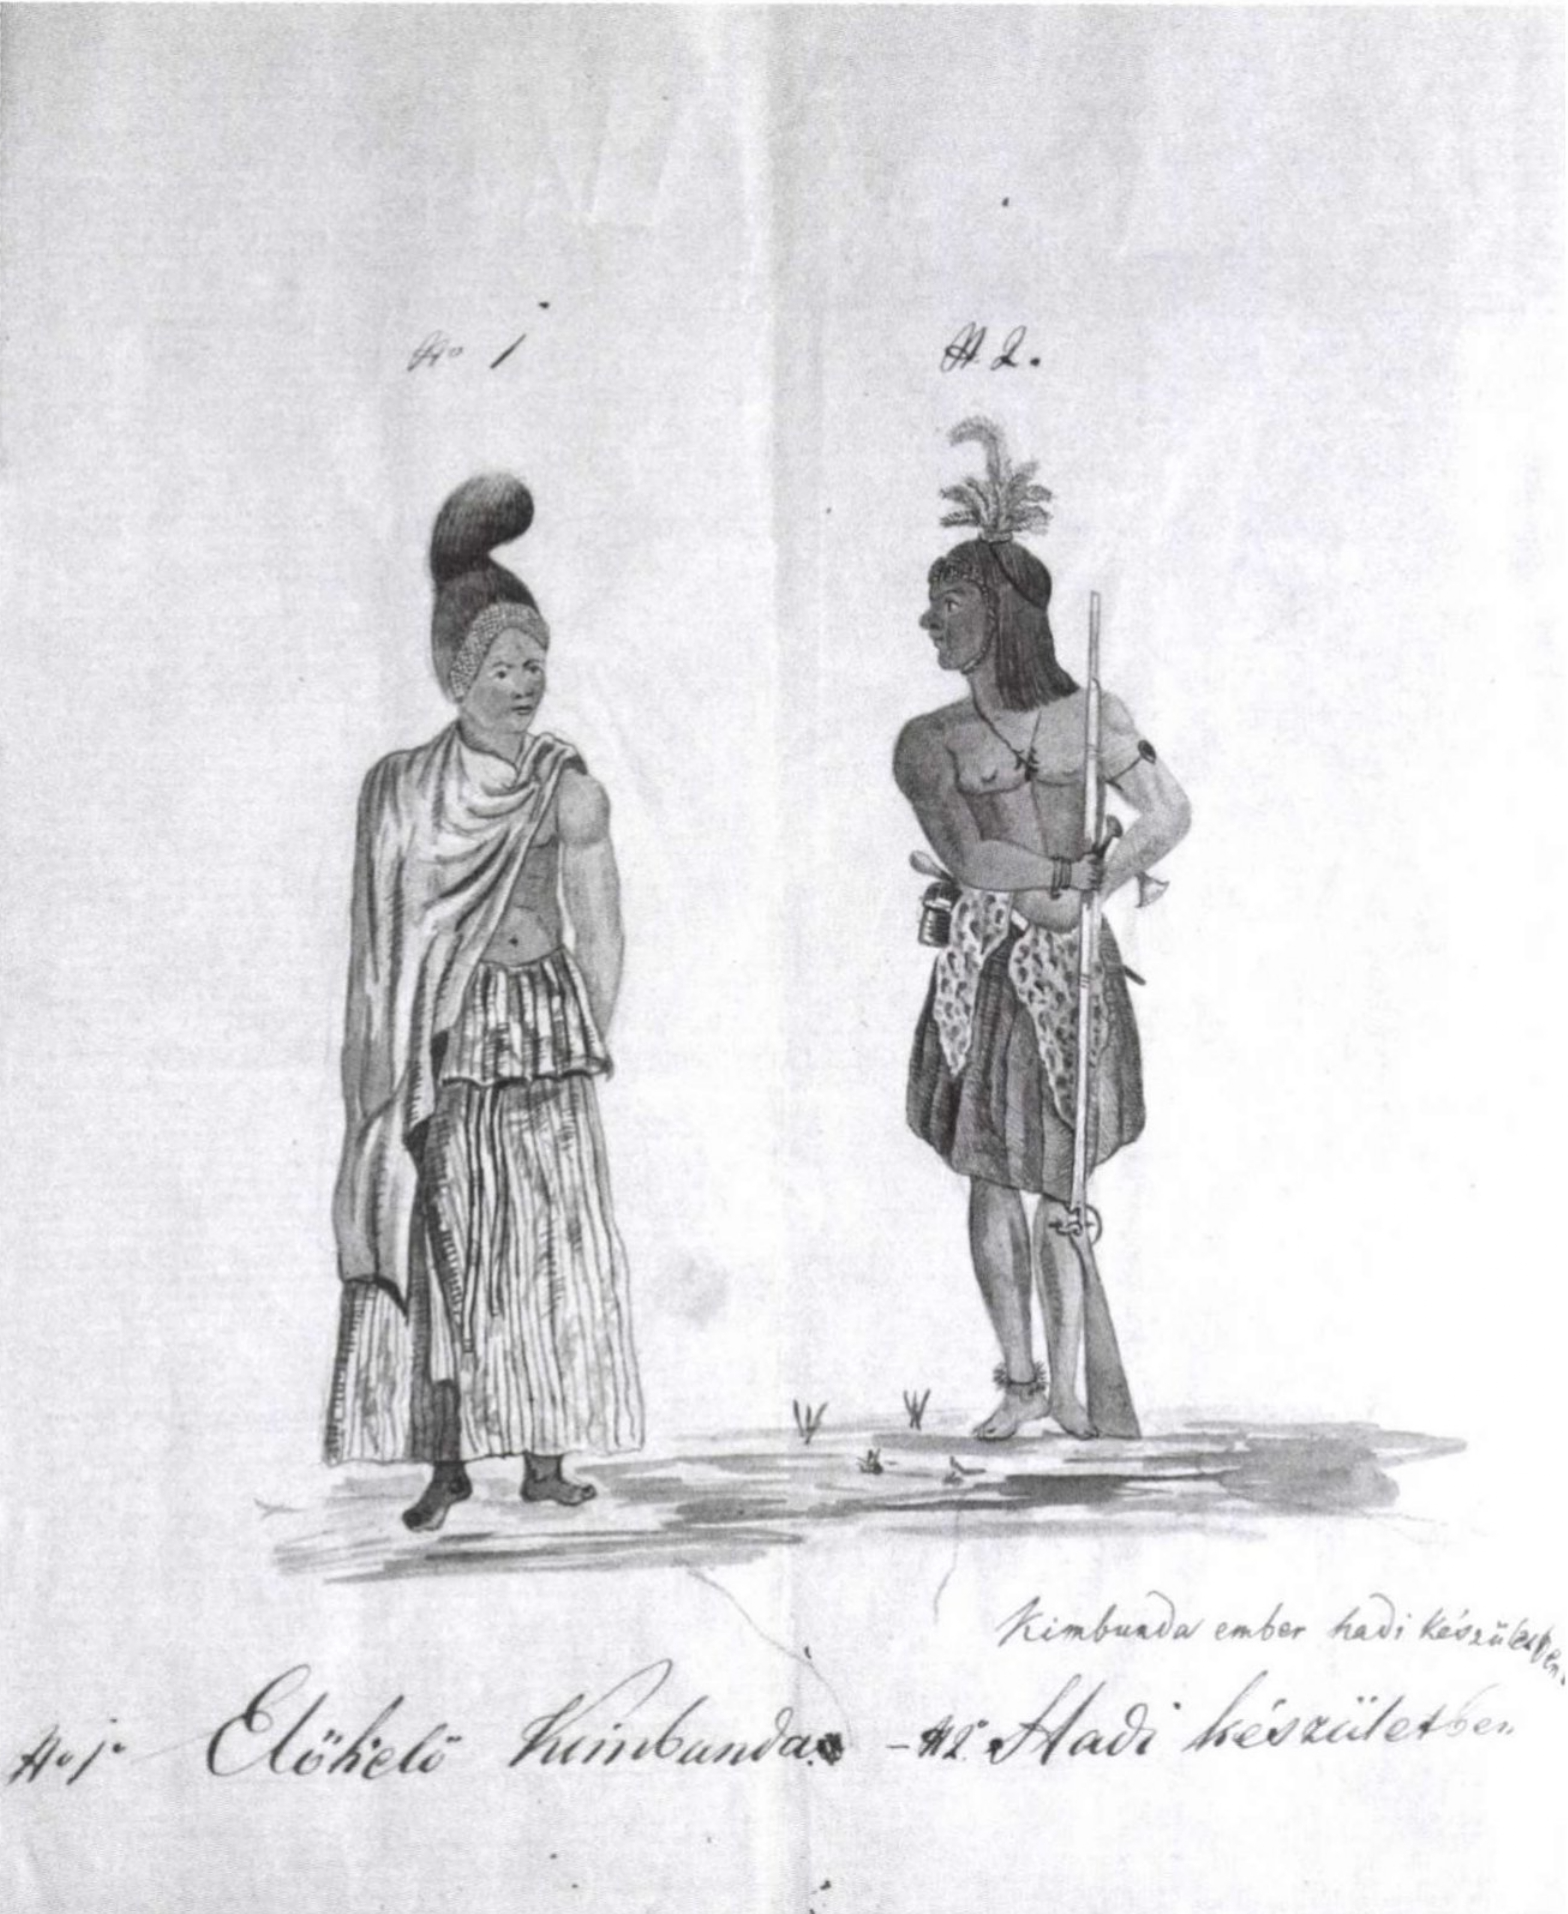 No 1
N. 2.
Kimbunda ember hadi készületben.
No 1. Előkelő Kimbunda - N2. Hadi készületben